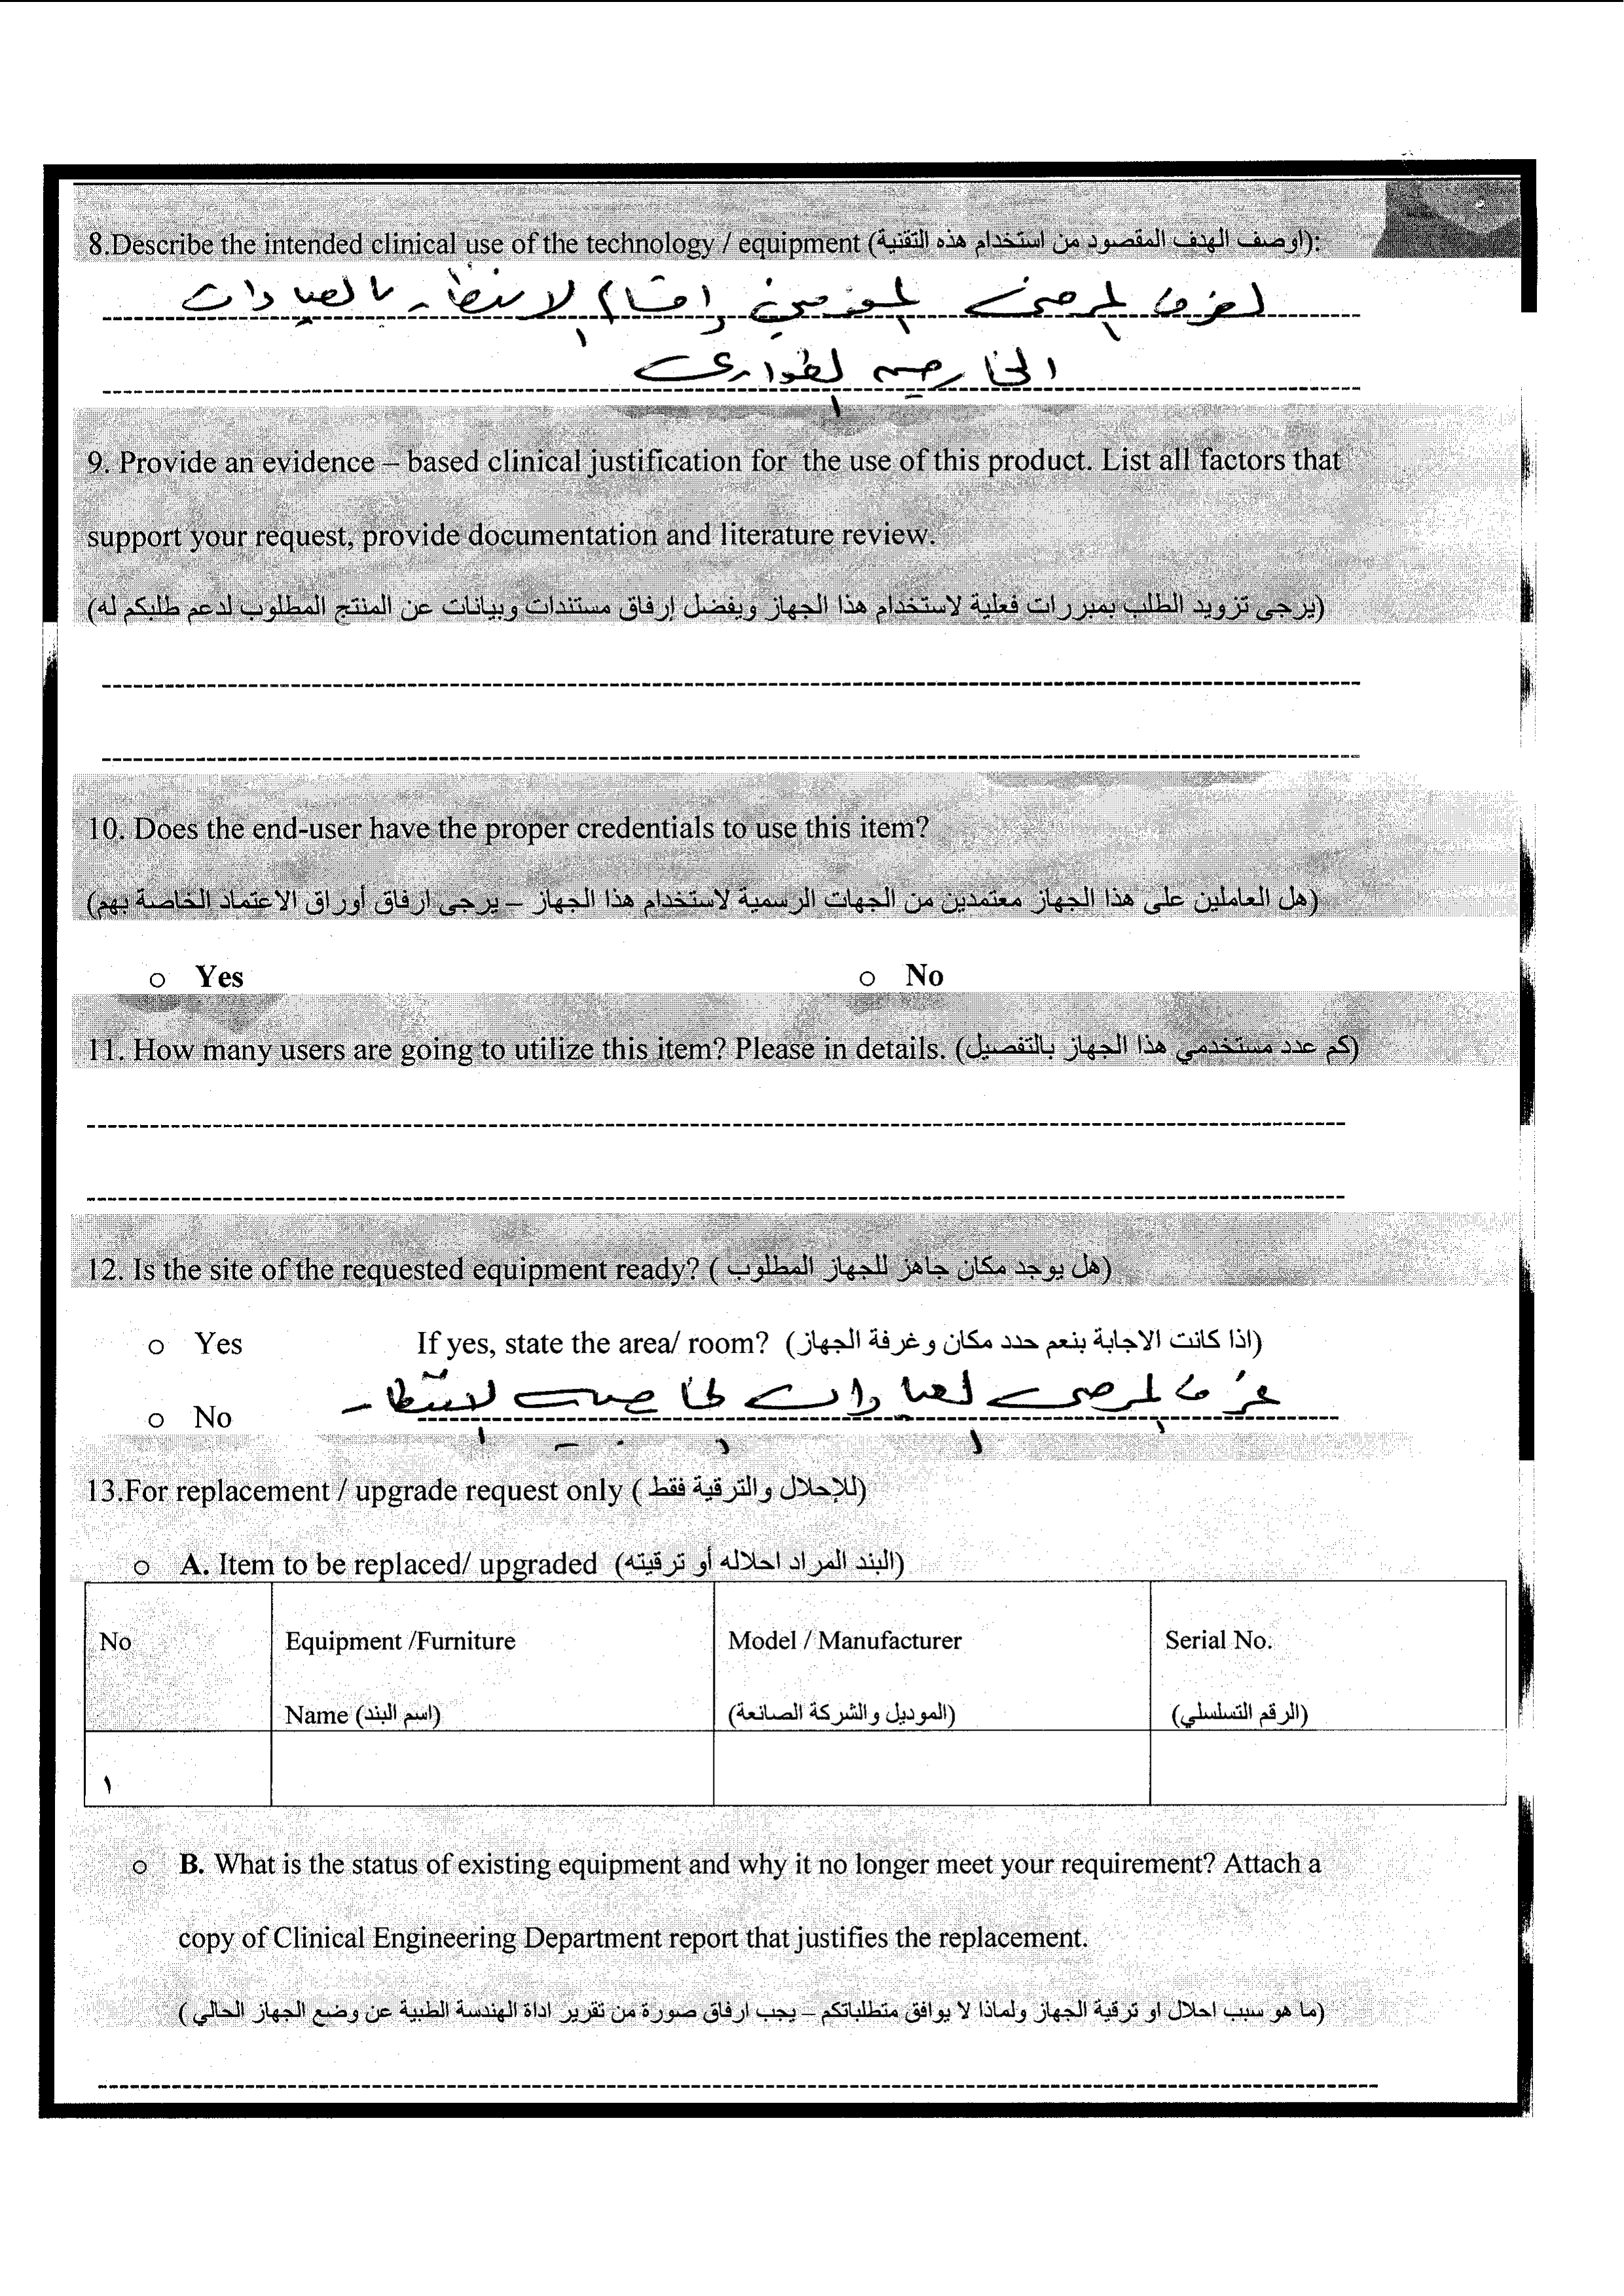 8.Describe the intended clinical use of the technology / equipment (اوصف الهدف المقصود من استخدام هذه التقنية):
لغرف المرضى المنومين اقسام الانتظار بالعيادات
الخارجية الطوارئ
9. Provide an evidence – based clinical justification for the use of this product. List all factors that
support your request, provide documentation and literature review.
(يرجى تزويد الطلب بمبررات فعلية لاستخدام هذا الجهاز ويفضل إرفاق مستندات وبيانات عن المنتج المطلوب لدعم طلبكم له)
10. Does the end-user have the proper credentials to use this item?
(هل العاملين على هذا الجهاز معتمدين من الجهات الرسمية لاستخدام هذا الجهاز – يرجى ارفاق أوراق الاعتماد الخاصة بهم)
o Yes o No
11. How many users are going to utilize this item? Please in details. (كم عدد مستخدمي هذا الجهاز بالتفصيل)
12. Is the site of the requested equipment ready? (هل يوجد مكان جاهز للجهاز المطلوب )
o Yes If yes, state the area/ room? (اذا كانت الاجابة بنعم حدد مكان وغرفة الجهاز)
o No غرف المرضى العيادات الخارجية الانتظار
13.For replacement / upgrade request only (للإحلال والترقية فقط )
o A. Item to be replaced/ upgraded (البند المراد احلاله أو ترقيته)
No Equipment /Furniture Model / Manufacturer Serial No.
Name (اسم البند) (الموديل والشركة الصانعة) (الرقم التسلسلي)
١
o B. What is the status of existing equipment and why it no longer meet your requirement? Attach a
copy of Clinical Engineering Department report that justifies the replacement.
(ما هو سبب احلال او ترقية الجهاز ولماذا لا يوافق متطلباتكم – يجب ارفاق صورة من تقرير اداة الهندسة الطبية عن وضع الجهاز الحالي )